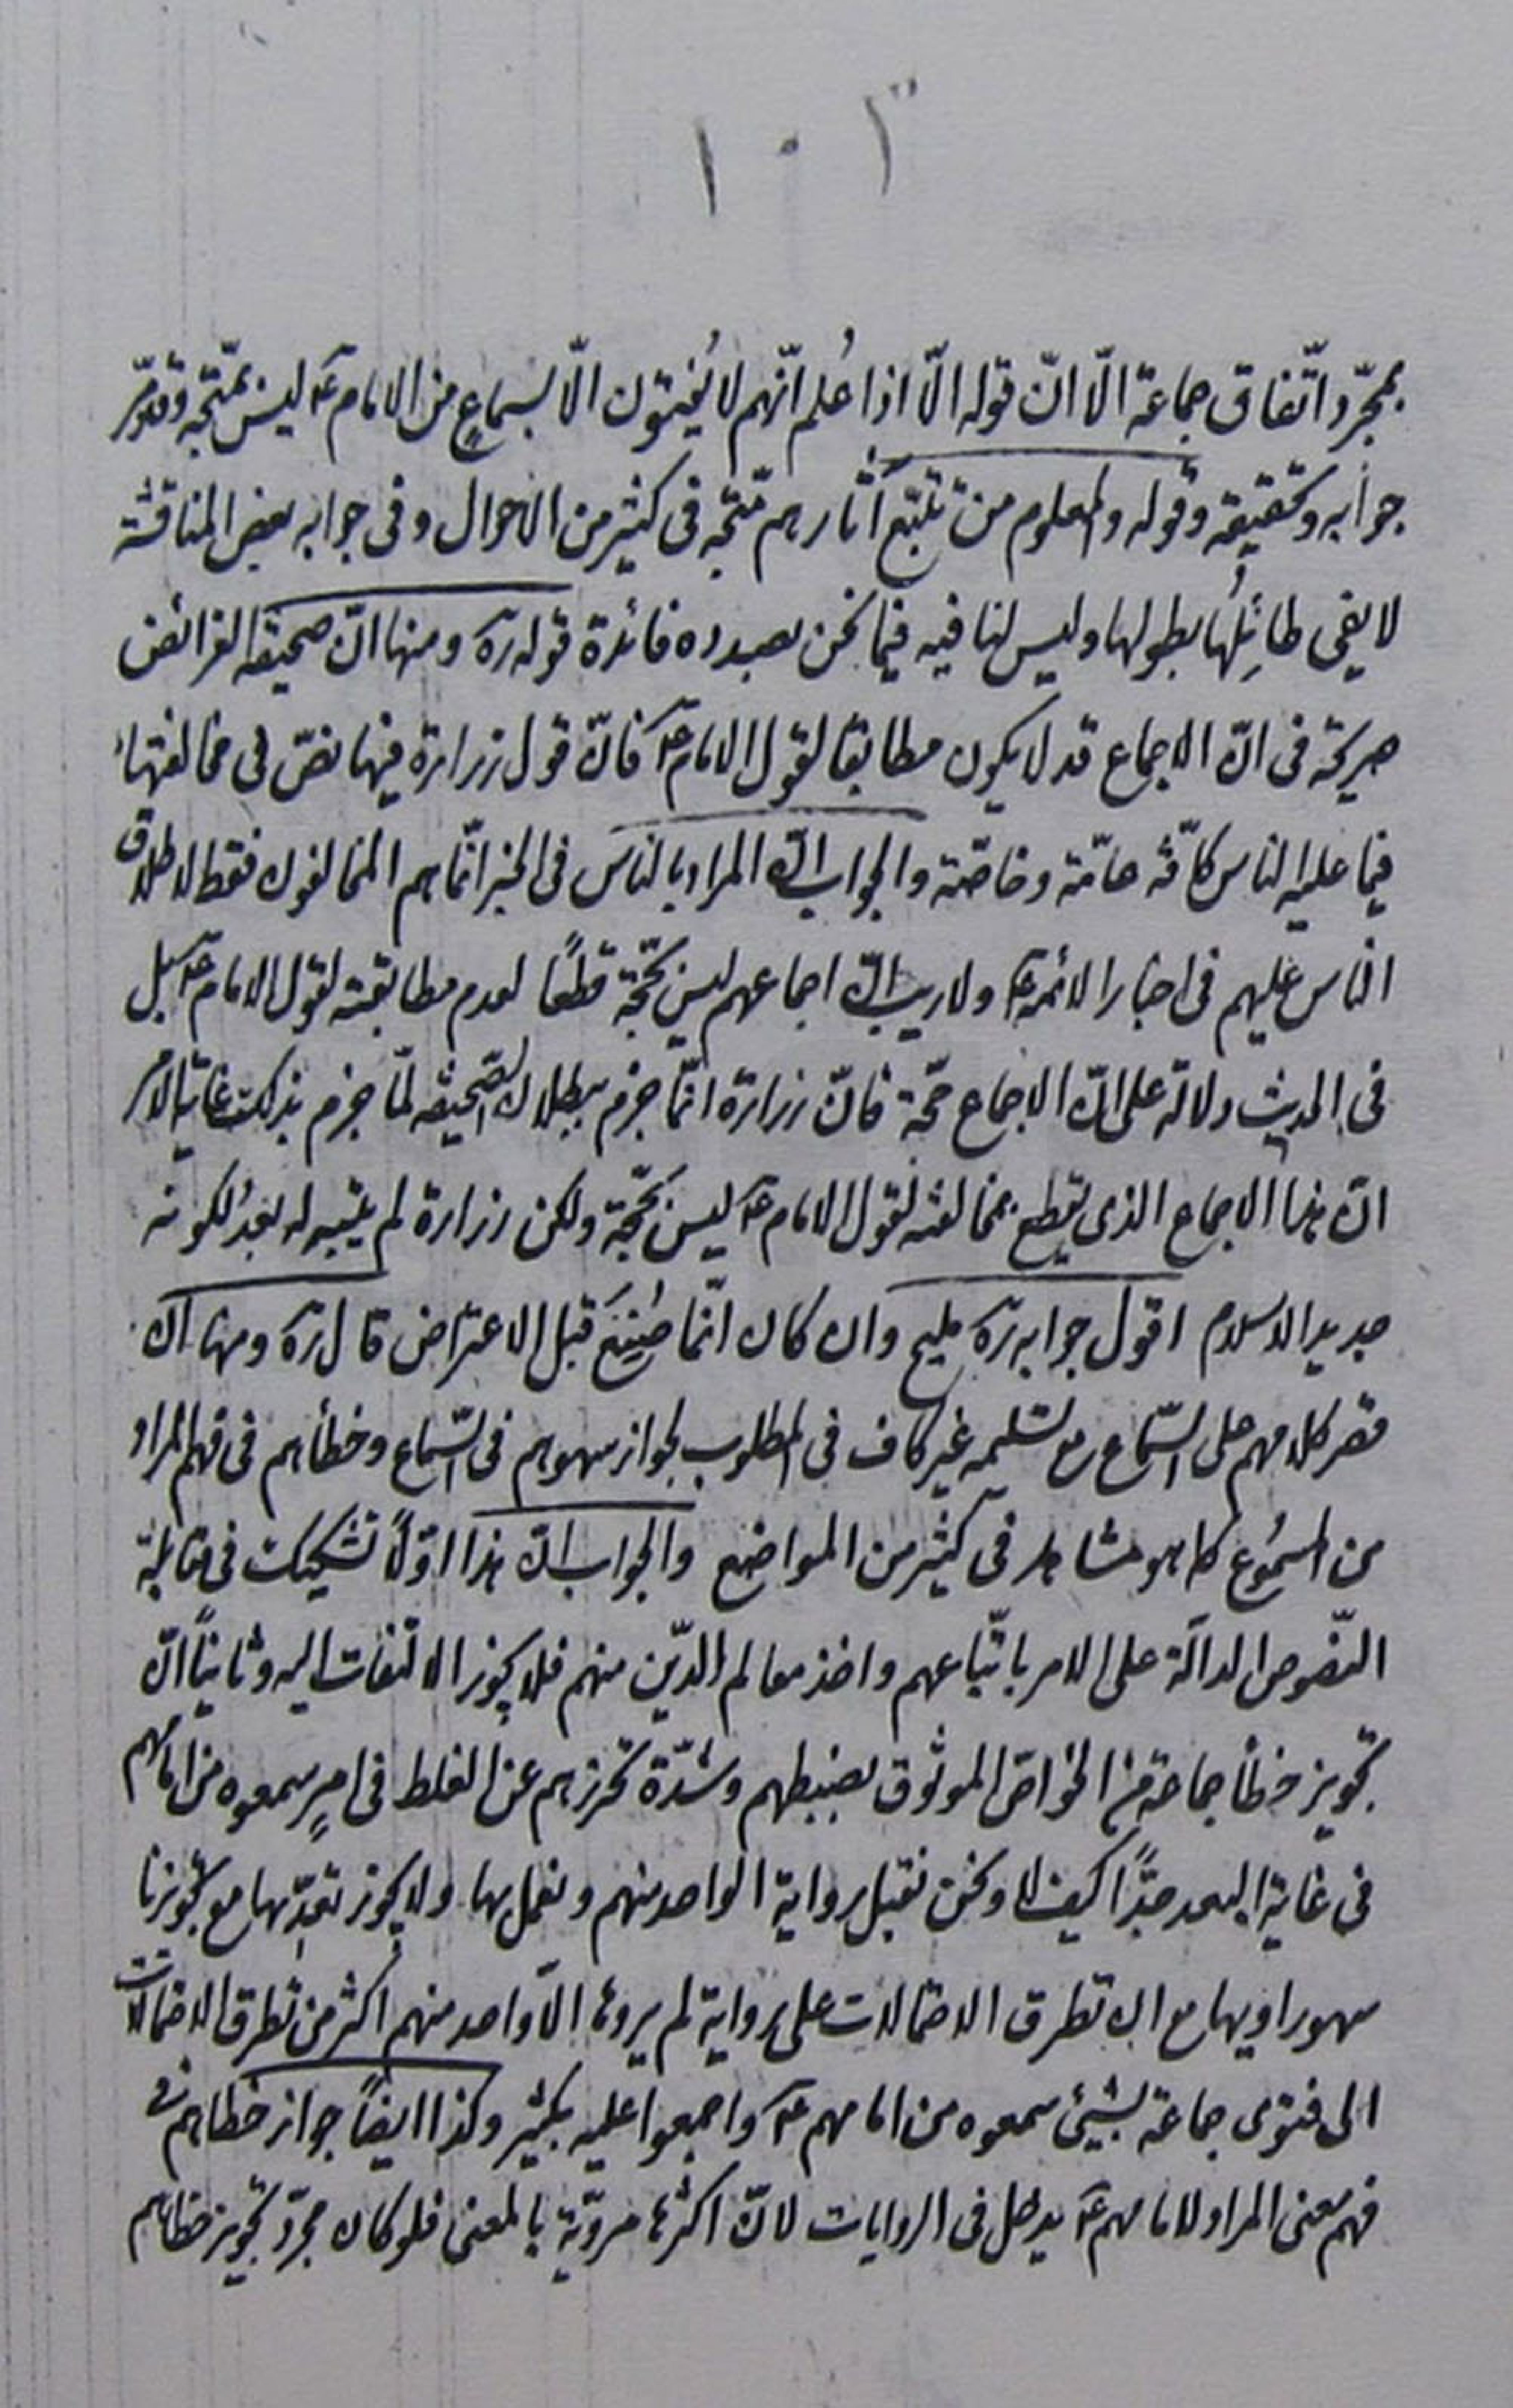 ١٠٣
بمجرّد اتّفاق جماعة الّا انّ قوله الّا اذا عُلم انّهم لا يُفيتون الّا بسماعٍ من الامام عَ ليس بمتّجه وقد مرّ
جوابه وتحقيقه وقوله والمعلوم من تتبّع آثارهم متّجه فى كثير من الاحوال وفى جوابه بعض المناقشة
لا يفى طائِلُها بطولها وليس لنا فيه فيما نحن بصدده فائدة قوله رَه ومنها انّ صحيفة الفرائض
صريحة فى انّ الاجماع قد لا يكون مطابقا لقول الامام عَ فانّ قول زرارة فيها نصّ فى مخالفتها
فيما عليه الناس كافّة عامّة وخاصّة والجواب انّ المراد بالناس فى الخبر انّما هم المخالفون فقط لاطلاق
الناس عليهم فى اخبار الائمة عَ ولا ريب انّ اجماعهم ليس بحجّة قطعًا لعدم مطابقته لقول الامام عَ بل
فى الحديث دلالة على انّ الاجماع حجّة فانّ زرارة انّما جزم ببطلان الصّحيفه لمّا جزم بذلك غاية الامر
انّ هذا الاجماع الذى يقطع بمخالفته لقول الامام عَ ليس بحجّة ولكن زرارة لم يتنبه له بعدُ لكونه
جديد الاسلام اقول جوابه رَه مليح وان كان انّما صُنِعَ قبل الاعتراض قال رَه ومنها انّ
قصر كلامهم على السّماع مع تسليمه غير كاف فى المطلوب لجواز سهوهم فى السّماع وخطأهم فى فهم المراد
من المسمُوع كما هو مشاهد فى كثير من المواضع والجواب انّ هذا اوّلاً تشكيك فى مقابلة
النّصوص الدالّة على الامر باتّباعهم واخذ معالم الدّين منهم فلا يجوز الالتفات اليه وثانياً انّ
تجويز خطأ جماعة من الخواصّ الموثوق بضبطهم وشدّة تحرّزهم عن الغلط فى امرٍ سمعوه من امامهم
فى غاية البعد جدًّا كيف لا ونحن نقبل رواية الواحد منهم ونعمل بها ولا يجوز تعدّيها مع تجويزنا
سهو راويها مع انّ تطرق الاحتمالات على رواية لم يروها الّا واحد منهم اكثر من تطرق الاحتمالات
الى فتوى جماعة بشيئ سمعوه من امامهم عَ واجمعوا عليه بكثير وكذا ايضاً جواز خطاهم فى
فهم معنى المراد لامامهم عَ يدخل فى الروايات لانّ اكثرها مرويّة بالمعنى فلو كان مجرّد تجويز خطاهم